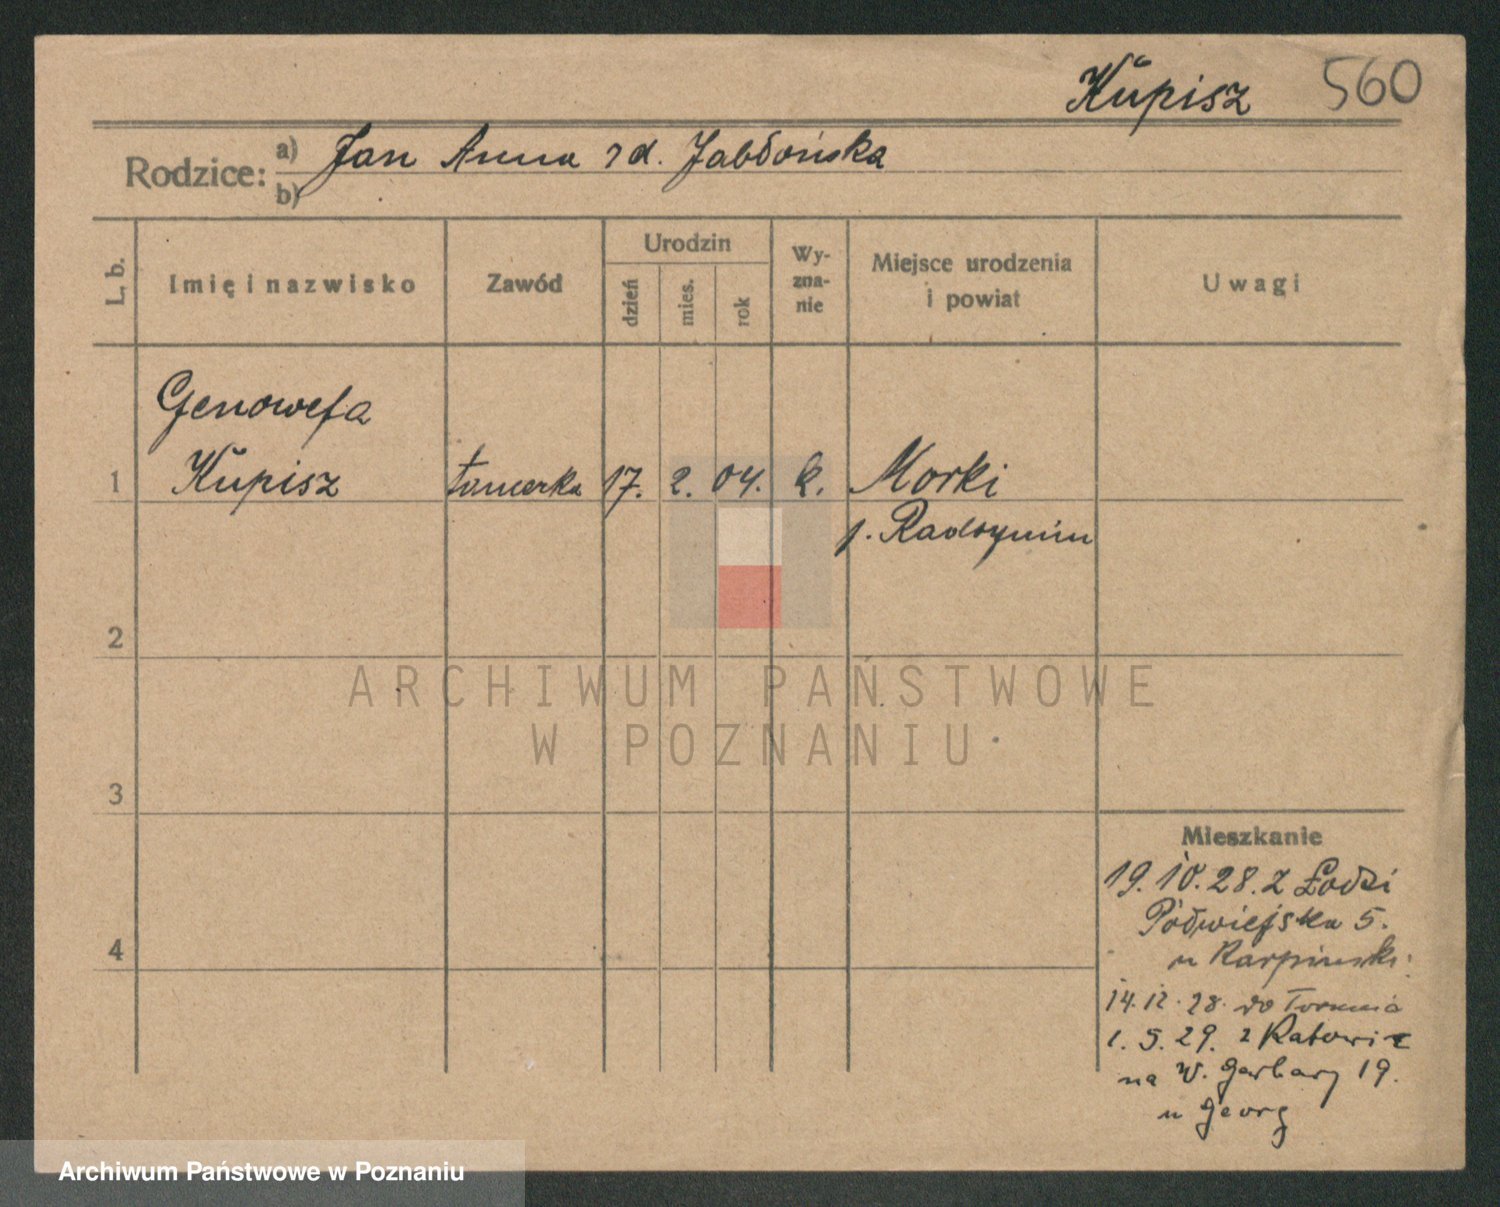 Kŭpisz 560
Rodzice: a) Jan Anna rd. Jabłońska
b)
L. b. Imię i nazwisko Zawód Urodzin dzień mies. rok Wy-zna-nie Miejsce urodzenia i powiat Uwagi
Genowefa
1 Kŭpisz 17. 2. 04. k. Morki
p. Radzymin
2
3
4
Mieszkanie
19.10.28. z Łodzi
Półwiejska 5.
u Karpiński
14.12.28. do Torunia
1.5.29. z Katowic
na W. Garbary 19.
u Georg
ARCHIWUM PAŃSTWOWE
W POZNANIU
Archiwum Państwowe w Poznaniu